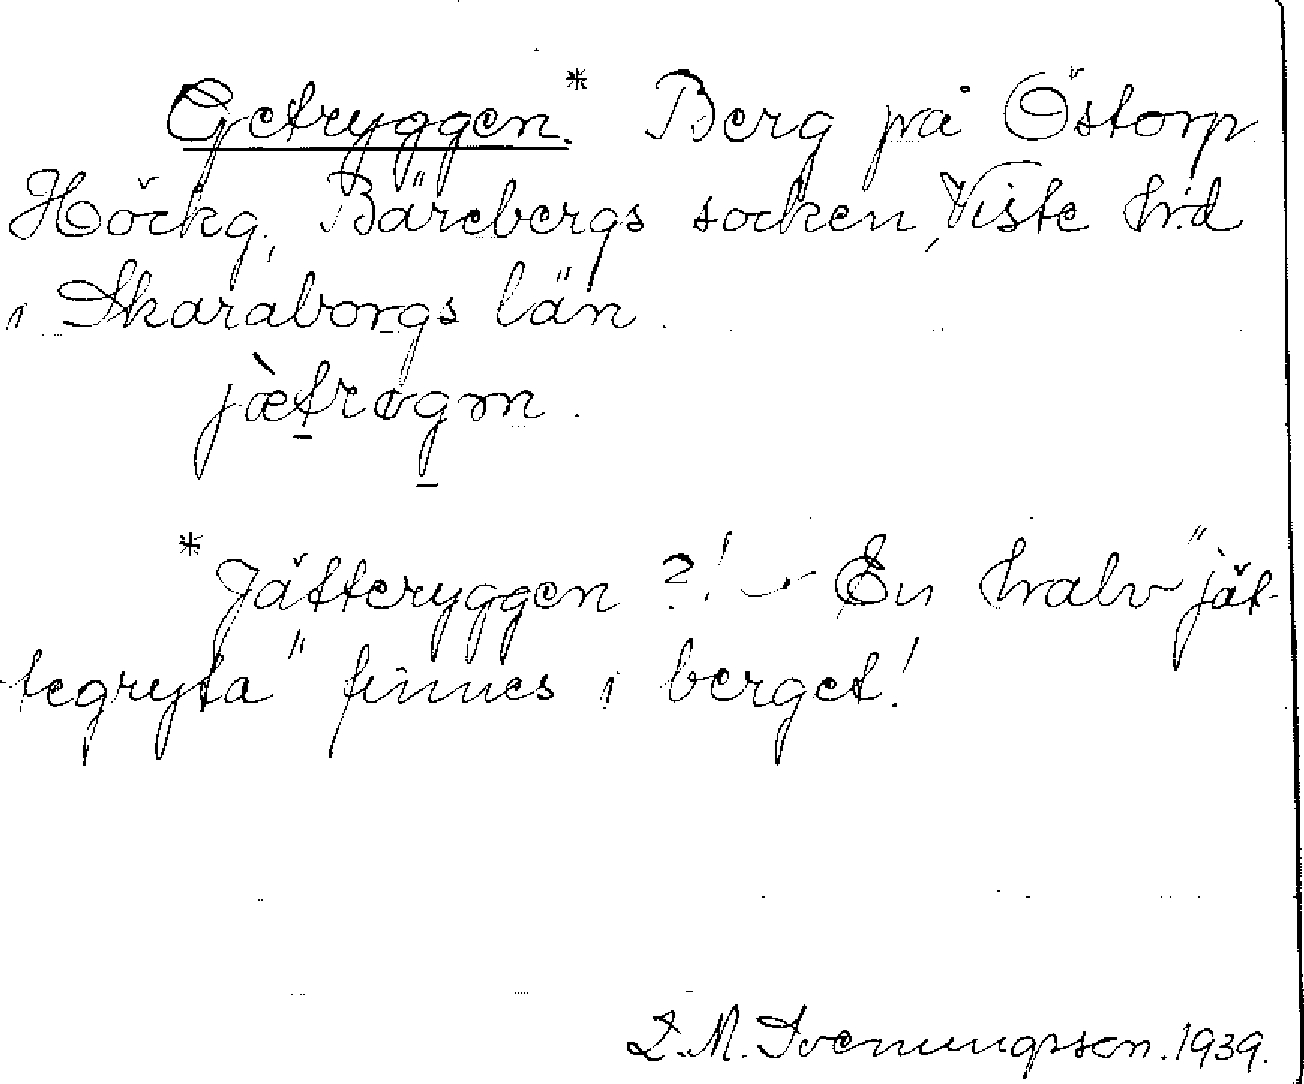 Getryggen.* Berg på Östorp
Höckg., Bärebergs socken, Viste hd
i Skaraborgs län.
jæ̀trøgən.
*Jätteryggen ?! – En halv "jät-
tegryta" finnes i berget!
L. M. Svenungsson. 1939.